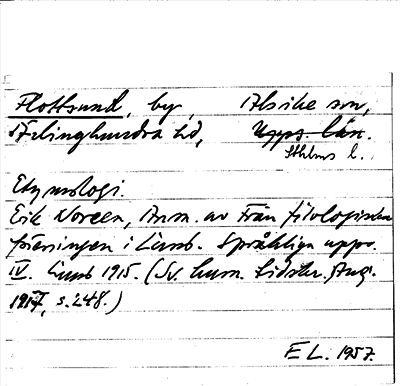 Flottsund, by, Alsike sn,
Ärlinghundra hd, Upps. län.
Sthlms l.
Etymologi.
Erik Noreen, Anm. av Från filologiska
föreningen i Lund. Språkliga upps.
IV. Lund 1915. (Sv. hum. tidskr. Aug.
1917, s. 248.)
E L. 1957.